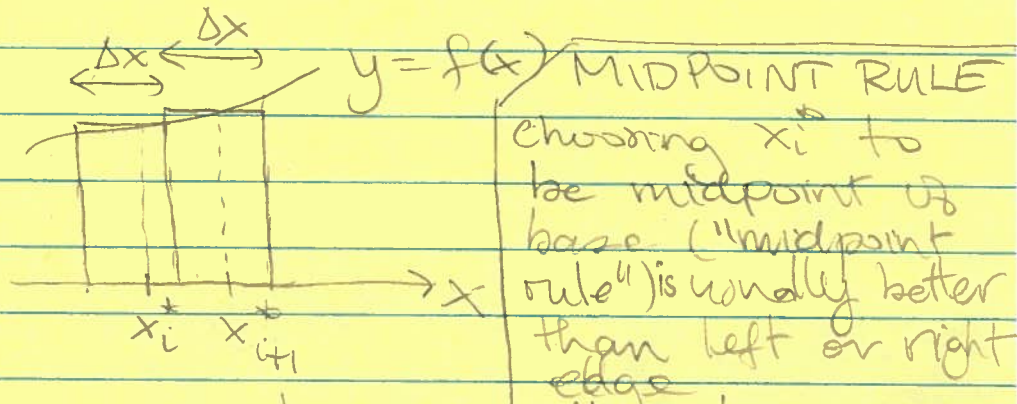 Δx Δx
y = f(x) MIDPOINT RULE
choosing xᵢ* to
be midpoint of
base ("midpoint
rule") is usually better
x
than left or right
xᵢ* xᵢ₊₁*
edge